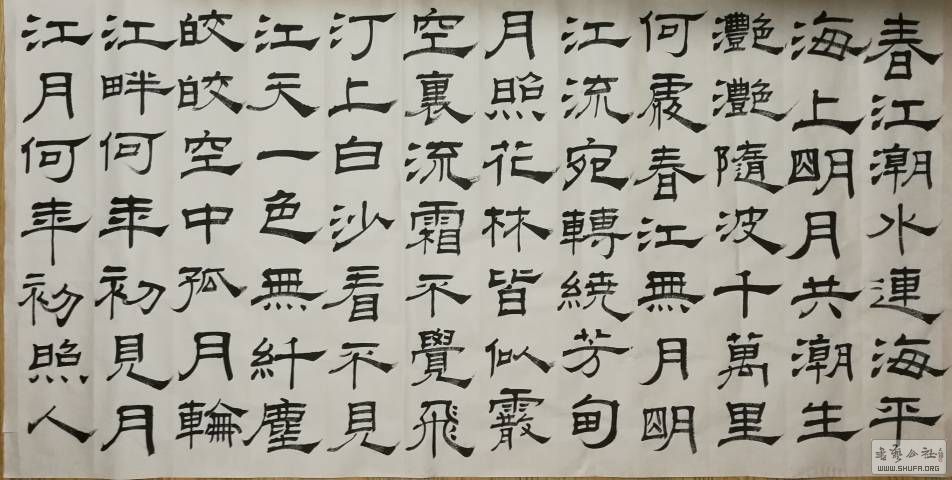 春江潮水連海平
海上明月共潮生
灩灩隨波千萬里
何處春江無月明
江流宛轉繞芳甸
月照花林皆似霰
空裏流霜不覺飛
汀上白沙看不見
江天一色無纖塵
皎皎空中孤月輪
江畔何年初見月
江月何年初照人
书艺公社
WWW.SHUFA.ORG